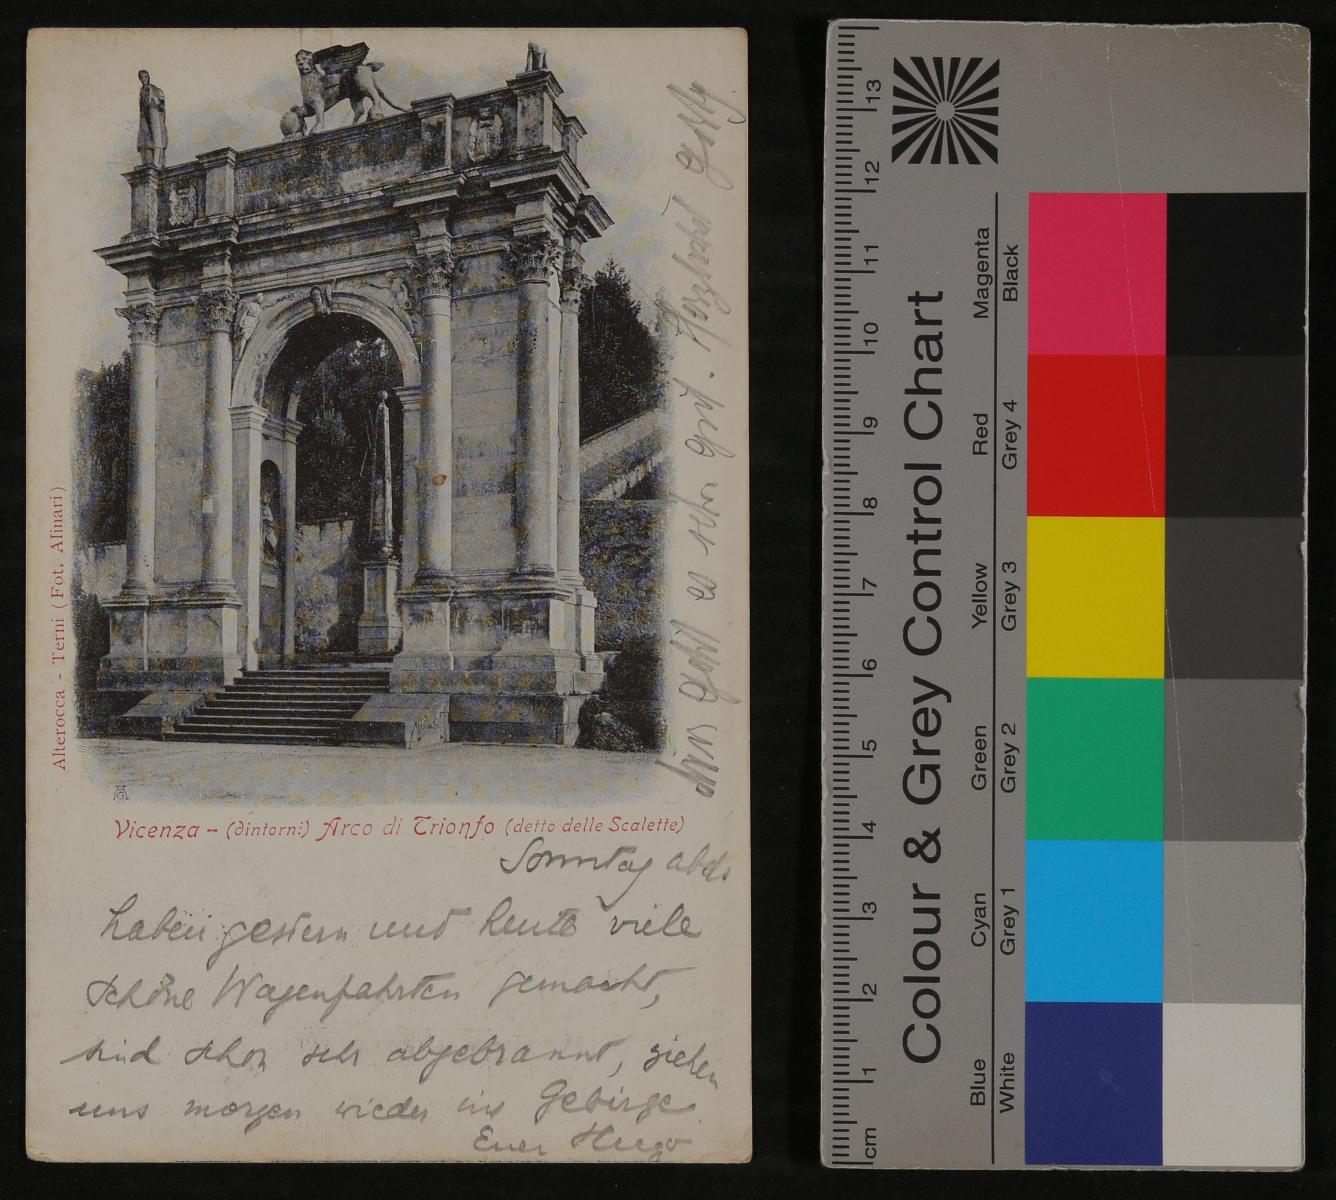 Alterocca - Terni (Fot. Alinari)
Vicenza - (dintorni) Arco di Trionfo (detto delle Scalette)
Sonntag abds
haben gestern und heute viele
schöne Wagenfahrten gemacht,
sind schon sehr abgebrannt, ziehen
uns morgen wieder ins Gebirge.
Euer Hugo
uns geht es sehr gut. Herzland
Colour & Grey Control Chart
Blue Cyan Green Yellow Red Magenta
White Grey 1 Grey 2 Grey 3 Grey 4 Black
cm 1 2 3 4 5 6 7 8 9 10 11 12 13